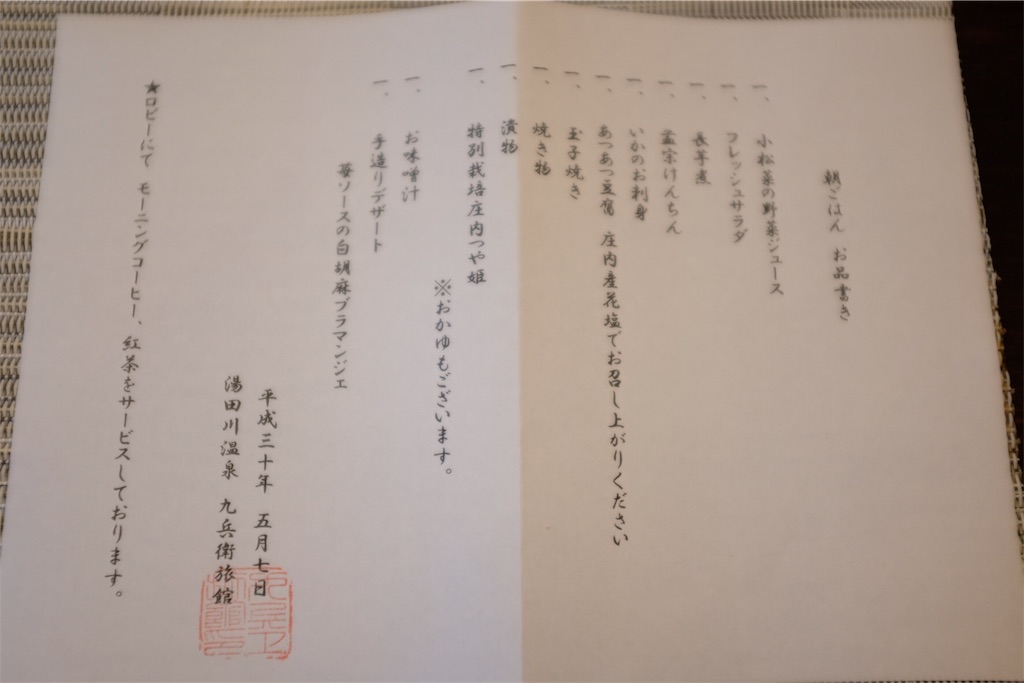 朝ごはん　お品書き
一、小松菜の野菜ジュース
一、フレッシュサラダ
一、長芋煮
一、孟宗けんちん
一、いかのお刺身
一、あつあつ豆腐　庄内産花塩でお召し上がりください
一、玉子焼き
一、焼き物
一、漬物
一、特別栽培庄内つや姫
※おかゆもございます。
一、お味噌汁
一、手造りデザート
苺ソースの白胡麻ブラマンジェ
平成三十年　五月七日
湯田川温泉　九兵衛旅館
★ロビーにて　モーニングコーヒー、紅茶をサービスしております。